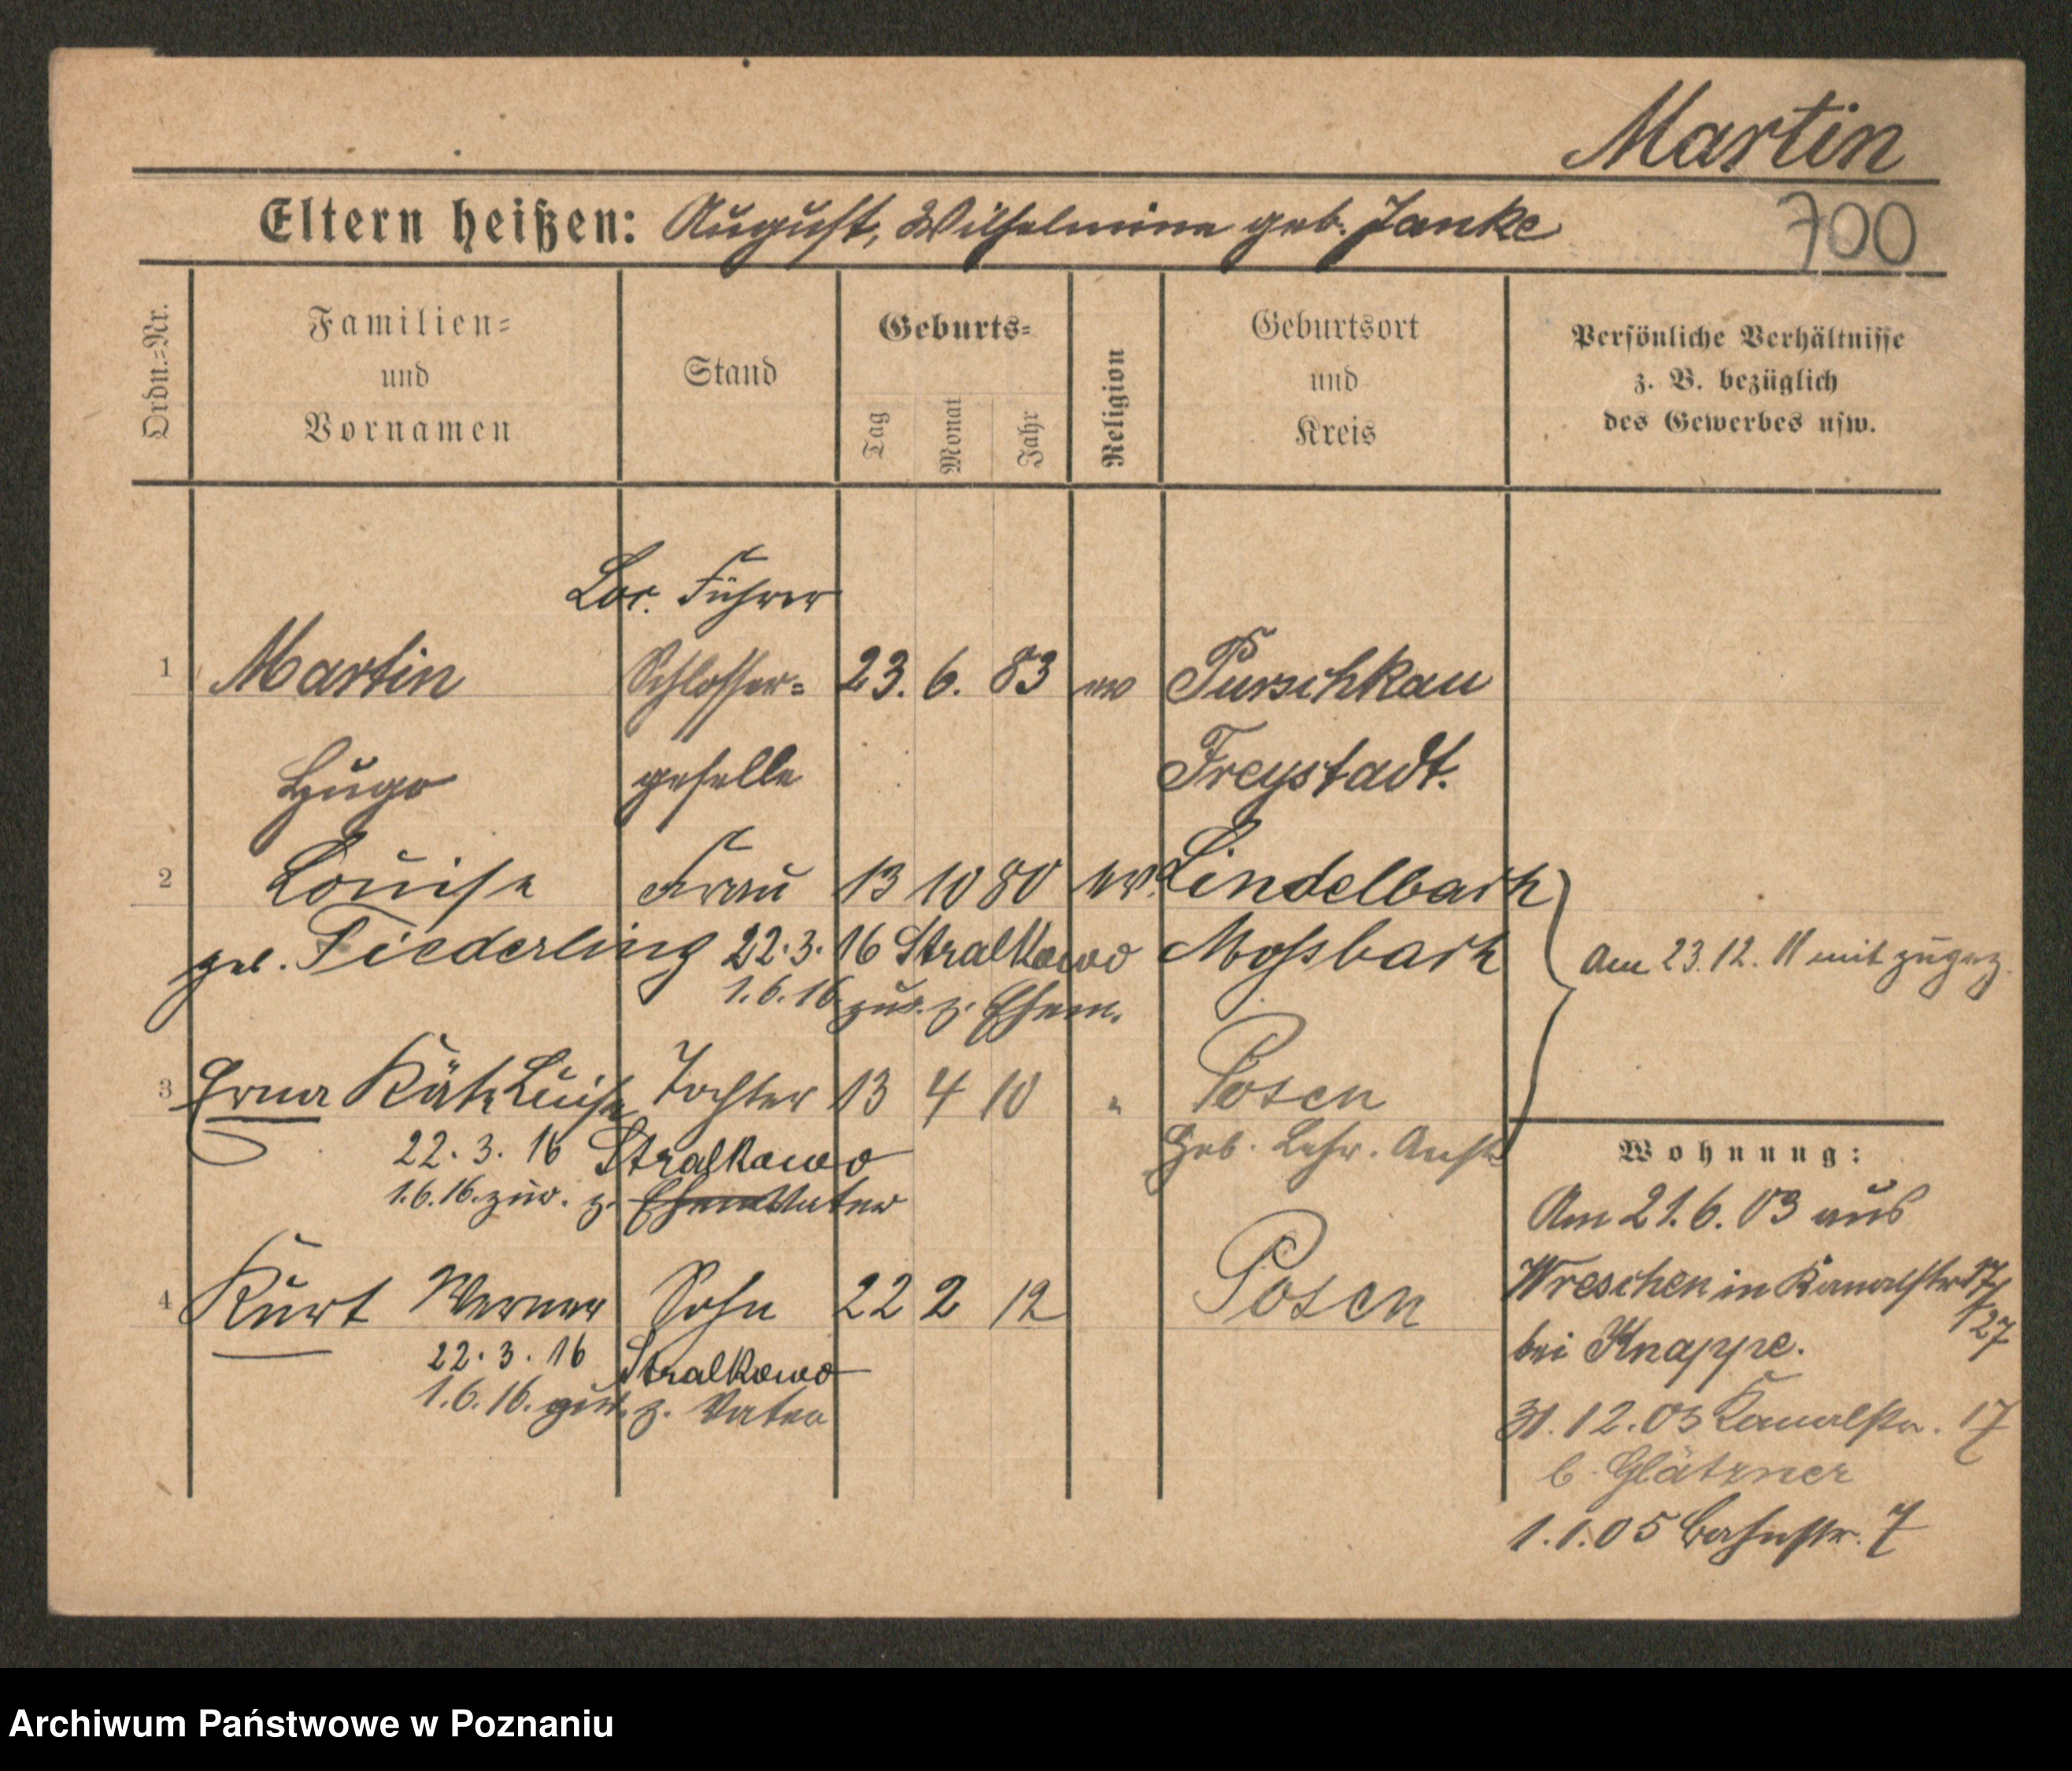 Martin
Eltern heißen: August, Wilhelmine geb. Janke
700
Ordn.-Nr.
Familien-
und
Vornamen
Stand
Geburts-
Tag
Monat
Jahr
Religion
Geburtsort
und
Kreis
Persönliche Verhältnisse
z. B. bezüglich
des Gewerbes usw.
Loc. Führer
1 Martin Schlosser- 23. 6. 83 ev Purschkau
Hugo geselle Freystadt.
2 Louise Frau 13 10 80 ev. Lindelbach
geb. Fiederling 22. 3. 16 Stralkowo Mossbach
am 23. 12. 11 mit zugez.
1. 6. 16 zur. z. Ehem.
3 Erna Käte Luise Tochter 13 4 10 " Posen
22. 3. 16 Stralkowo Heb. Lehr. Anst.
1. 6. 16. zur. z. Ehem Vater
4 Kurt Werner Sohn 22 2 12 Posen
22. 3. 16 Stralkowo
1. 6. 16. zur. z. Vater
Wohnung:
Am 21. 6. 03 aus
Wreschen in Kanalstr 17/
27
bei Knappe.
31. 12. 03 Kanalstr. 17
b. Glätzner
1. 1. 05 Bahnstr. 7
Archiwum Państwowe w Poznaniu